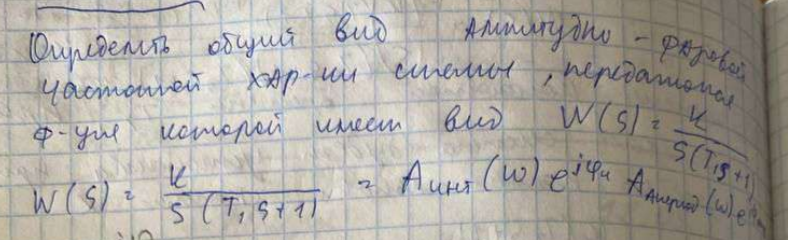 Определить общий вид амплитудно - фазовой
частотной хар-ки системы, передаточная
ф-ция которой имеет вид W(S) = K / S(T₁S+1)
W(S) = K / S(T₁S+1) = Aинт(ω) e^jφи Aапериод(ω) e